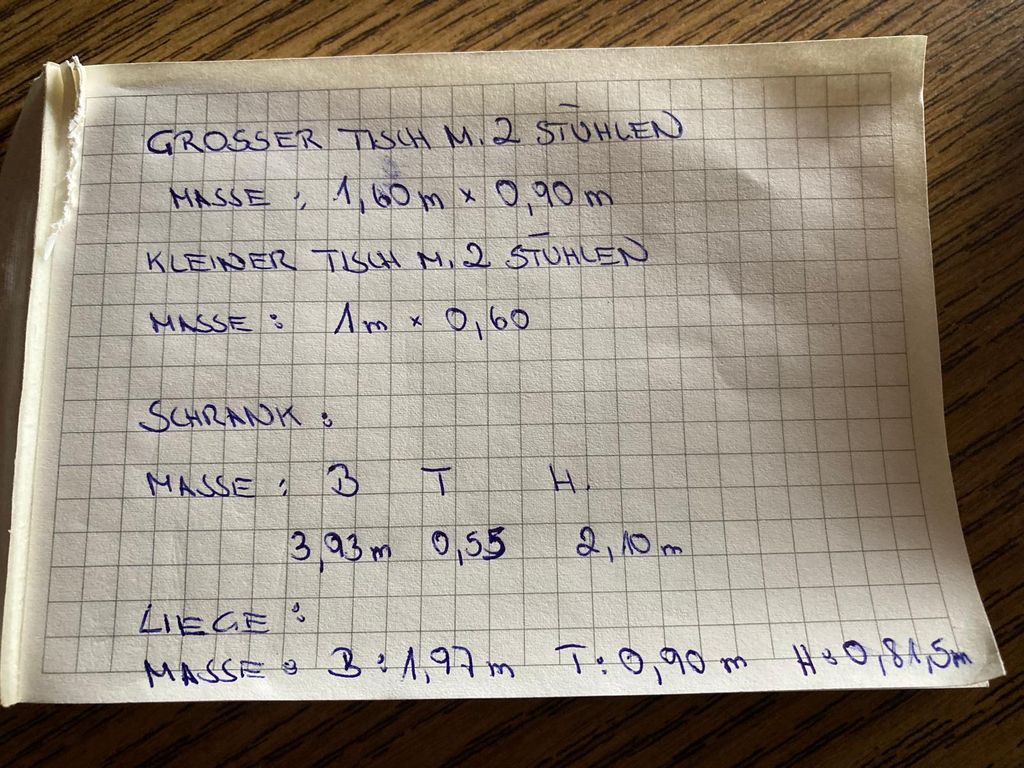 GROSSER TISCH M. 2 STÜHLEN
MASSE : 1,60 m × 0,90 m
KLEINER TISCH M. 2 STÜHLEN
MASSE : 1 m × 0,60
SCHRANK :
MASSE : B T H.
3,93 m 0,55 2,10 m
LIEGE :
MASSE : B : 1,97 m T : 0,90 m H : 0,81,5 m